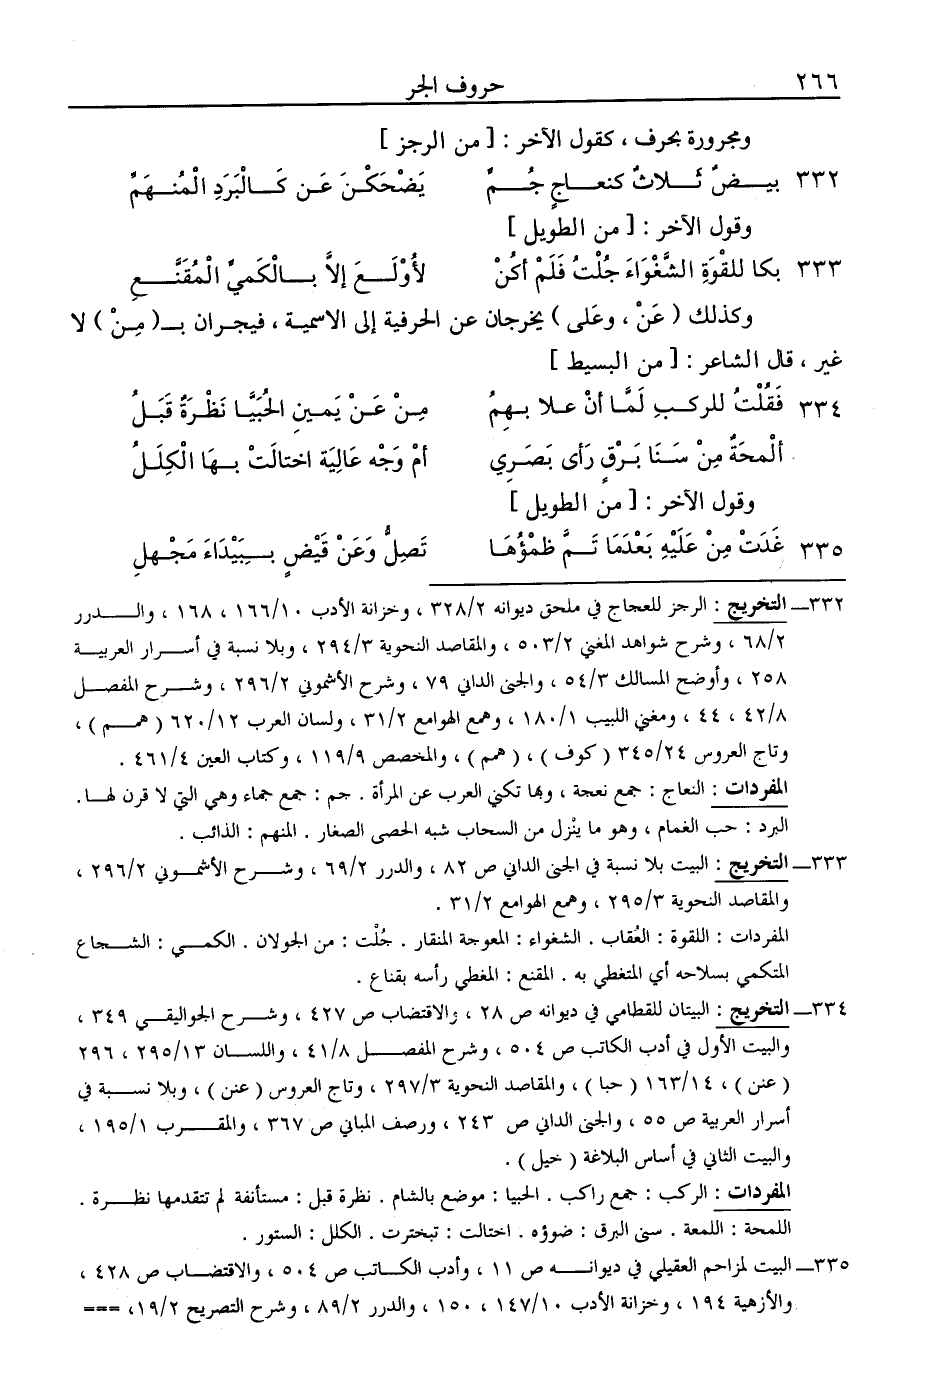 ٢٦٦
حروف الجر
ومجرورة بحرف ، كقول الآخر : [ من الرجز ]
٣٣٢ بيــضٌ ثَــلاثٌ كنعــاجٍ جُــمِّ يَضْحَكْـنَ عَـن كَـالْبَرَدِ الْمُنْـهَمِّ
وقول الآخر : [ من الطويل ]
٣٣٣ بكا للقْوَةِ الشَّغْوَاءَ جُلْتُ فَلَمْ أَكُنْ لأُوْلَـعَ إلاَّ بـالْكَمِيِّ الْمُقَنَّـعِ
وكذلك ( عَنْ ، وعَلى ) يخرجان عن الحرفية إلى الاسمية ، فيجران بـ( مِنْ ) لا
غير ، قال الشاعر : [ من البسيط ]
٣٣٤ فَقُلْتُ للركبِ لَمَّا أنْ علا بهمُ مِنْ عَنْ يَمينِ الحُبَيَّا نَظْرَةٌ قَبَلُ
ألْمحَةٌ مِنْ سَنَا بَرْقٍ رَأى بَصَرِي أمْ وَجْه عَالِيَة اختالَتْ بهَا الْكِلَلُ
وقول الآخر : [ من الطويل ]
٣٣٥ غَدَتْ مِنْ عَلَيْهِ بَعْدَمَا تَمَّ ظمْؤُهَا تَصِلُّ وَعَنْ قَيْضٍ بِبَيْدَاءَ مَجْهلِ
٣٣٢ــ التخريج : الرجز للعجاج في ملحق ديوانه ٣٢٨/٢ ، وخزانة الأدب ١٦٦/١٠ ، ١٦٨ ، والــدرر
٦٨/٢ ، وشرح شواهد المغني ٥٠٣/٢ ، والمقاصد النحوية ٢٩٤/٣ ، وبلا نسبة في أسرار العربية
٢٥٨ ، وأوضح المسالك ٥٤/٣ ، والجنى الداني ٧٩ ، وشرح الأشموني ٢٩٦/٢ ، وشرح المفصل
٤٢/٨ ، ٤٤ ، ومغني اللبيب ١٨٠/١ ، وهمع الهوامع ٣١/٢ ، ولسان العرب ٦٢٠/١٢ ( همـم ) ،
وتاج العروس ٣٤٥/٢٤ ( كوف ) ، ( همم ) ، والمخصص ١١٩/٩ ، وكتاب العين ٤٦١/٤ .
المفردات : النعاج : جمع نعجة ، وبها تكني العرب عن المرأة . جم : جمع جماء وهي التي لا قرن لهـا.
البرد : حب الغمام ، وهو ما ينْزل من السحاب شبه الحصى الصغار . المنهم : الذائب .
٣٣٣ــ التخريج : البيت بلا نسبة في الجنى الداني ص ٨٢ ، والدرر ٦٩/٢ ، وشرح الأشموني ٢٩٦/٢ ،
والمقاصد النحوية ٢٩٥/٣ ، وهمع الهوامع ٣١/٢ .
المفردات : اللقوة : العُقاب . الشغواء : المعوجة المنقار . جُلْت : من الجولان . الكمي : الشجاع
المتكمي بسلاحه أي المتغطي به . المقنع : المغطي رأسه بقناع .
٣٣٤ــ التخريج : البيتان للقطامي في ديوانه ص ٢٨ ، والاقتضاب ص ٤٢٧ ، وشرح الجواليقي ٣٤٩ ،
والبيت الأول في أدب الكاتب ص ٥٠٤ ، وشرح المفصل ٤١/٨ ، واللسان ٢٩٥/١٣ ، ٢٩٦
( عنن ) ، ١٦٣/١٤ ( حبا ) ، والمقاصد النحوية ٢٩٧/٣ ، وتاج العروس ( عنن ) ، وبلا نسبة في
أسرار العربية ص ٥٥ ، والجنى الداني ص ٢٤٣ ، ورصف المباني ص ٣٦٧ ، والمقرب ١٩٥/١ ،
والبيت الثاني في أساس البلاغة ( خيل ) .
المفردات : الركب : جمع راكب . الحبيا : موضع بالشام . نظرة قبل : مستأنفة لم تتقدمها نظرة .
اللمحة : اللمعة . سنى البرق : ضوؤه . اختالت : تبخترت . الكلل : الستور .
٣٣٥ــ البيت لمزاحم العقيلي في ديوانه ص ١١ ، وأدب الكاتب ص ٥٠٤ ، والاقتضاب ص ٤٢٨ ،
والأزهية ١٩٤ ، وخزانة الأدب ١٤٧/١٠ ، ١٥٠ ، والدرر ٨٩/٢ ، وشرح التصريح ١٩/٢، ===